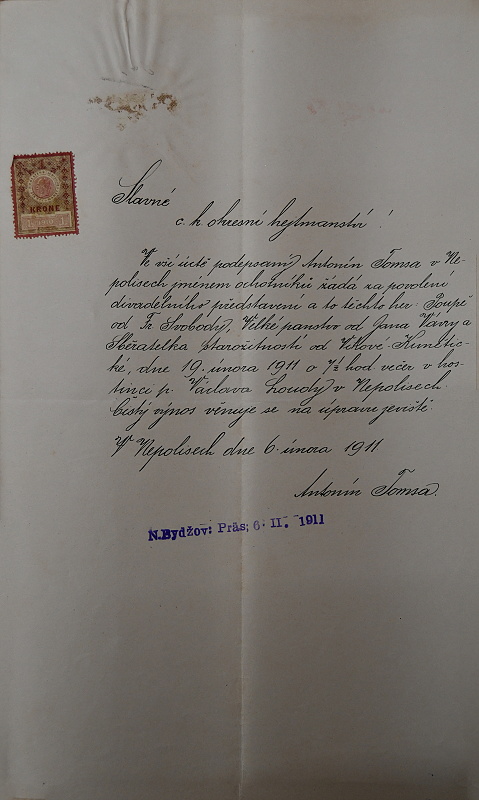 1
KRONE
Slavné
c. k. okresní hejtmanství!
Ve vší úctě podepsaný Antonín Tomsa v Ne-
polisech jménem ochotníků žádá za povolení
divadelního představení a to těchto her: Poupě
od Fr. Svobody, Velké panstvo od Jana Vávry a
Sběratelka starožitností od Vikové-Kunětic-
ké, dne 19. února 1911 o 7½ hod večer v hos-
tinci p. Václava Loudy v Nepolisech.
Čistý výnos venuje se na úpravu jeviště.
V Nepolisech dne 6. února 1911.
Antonín Tomsa.
N.Bydžov: Präs; 6. II. 1911